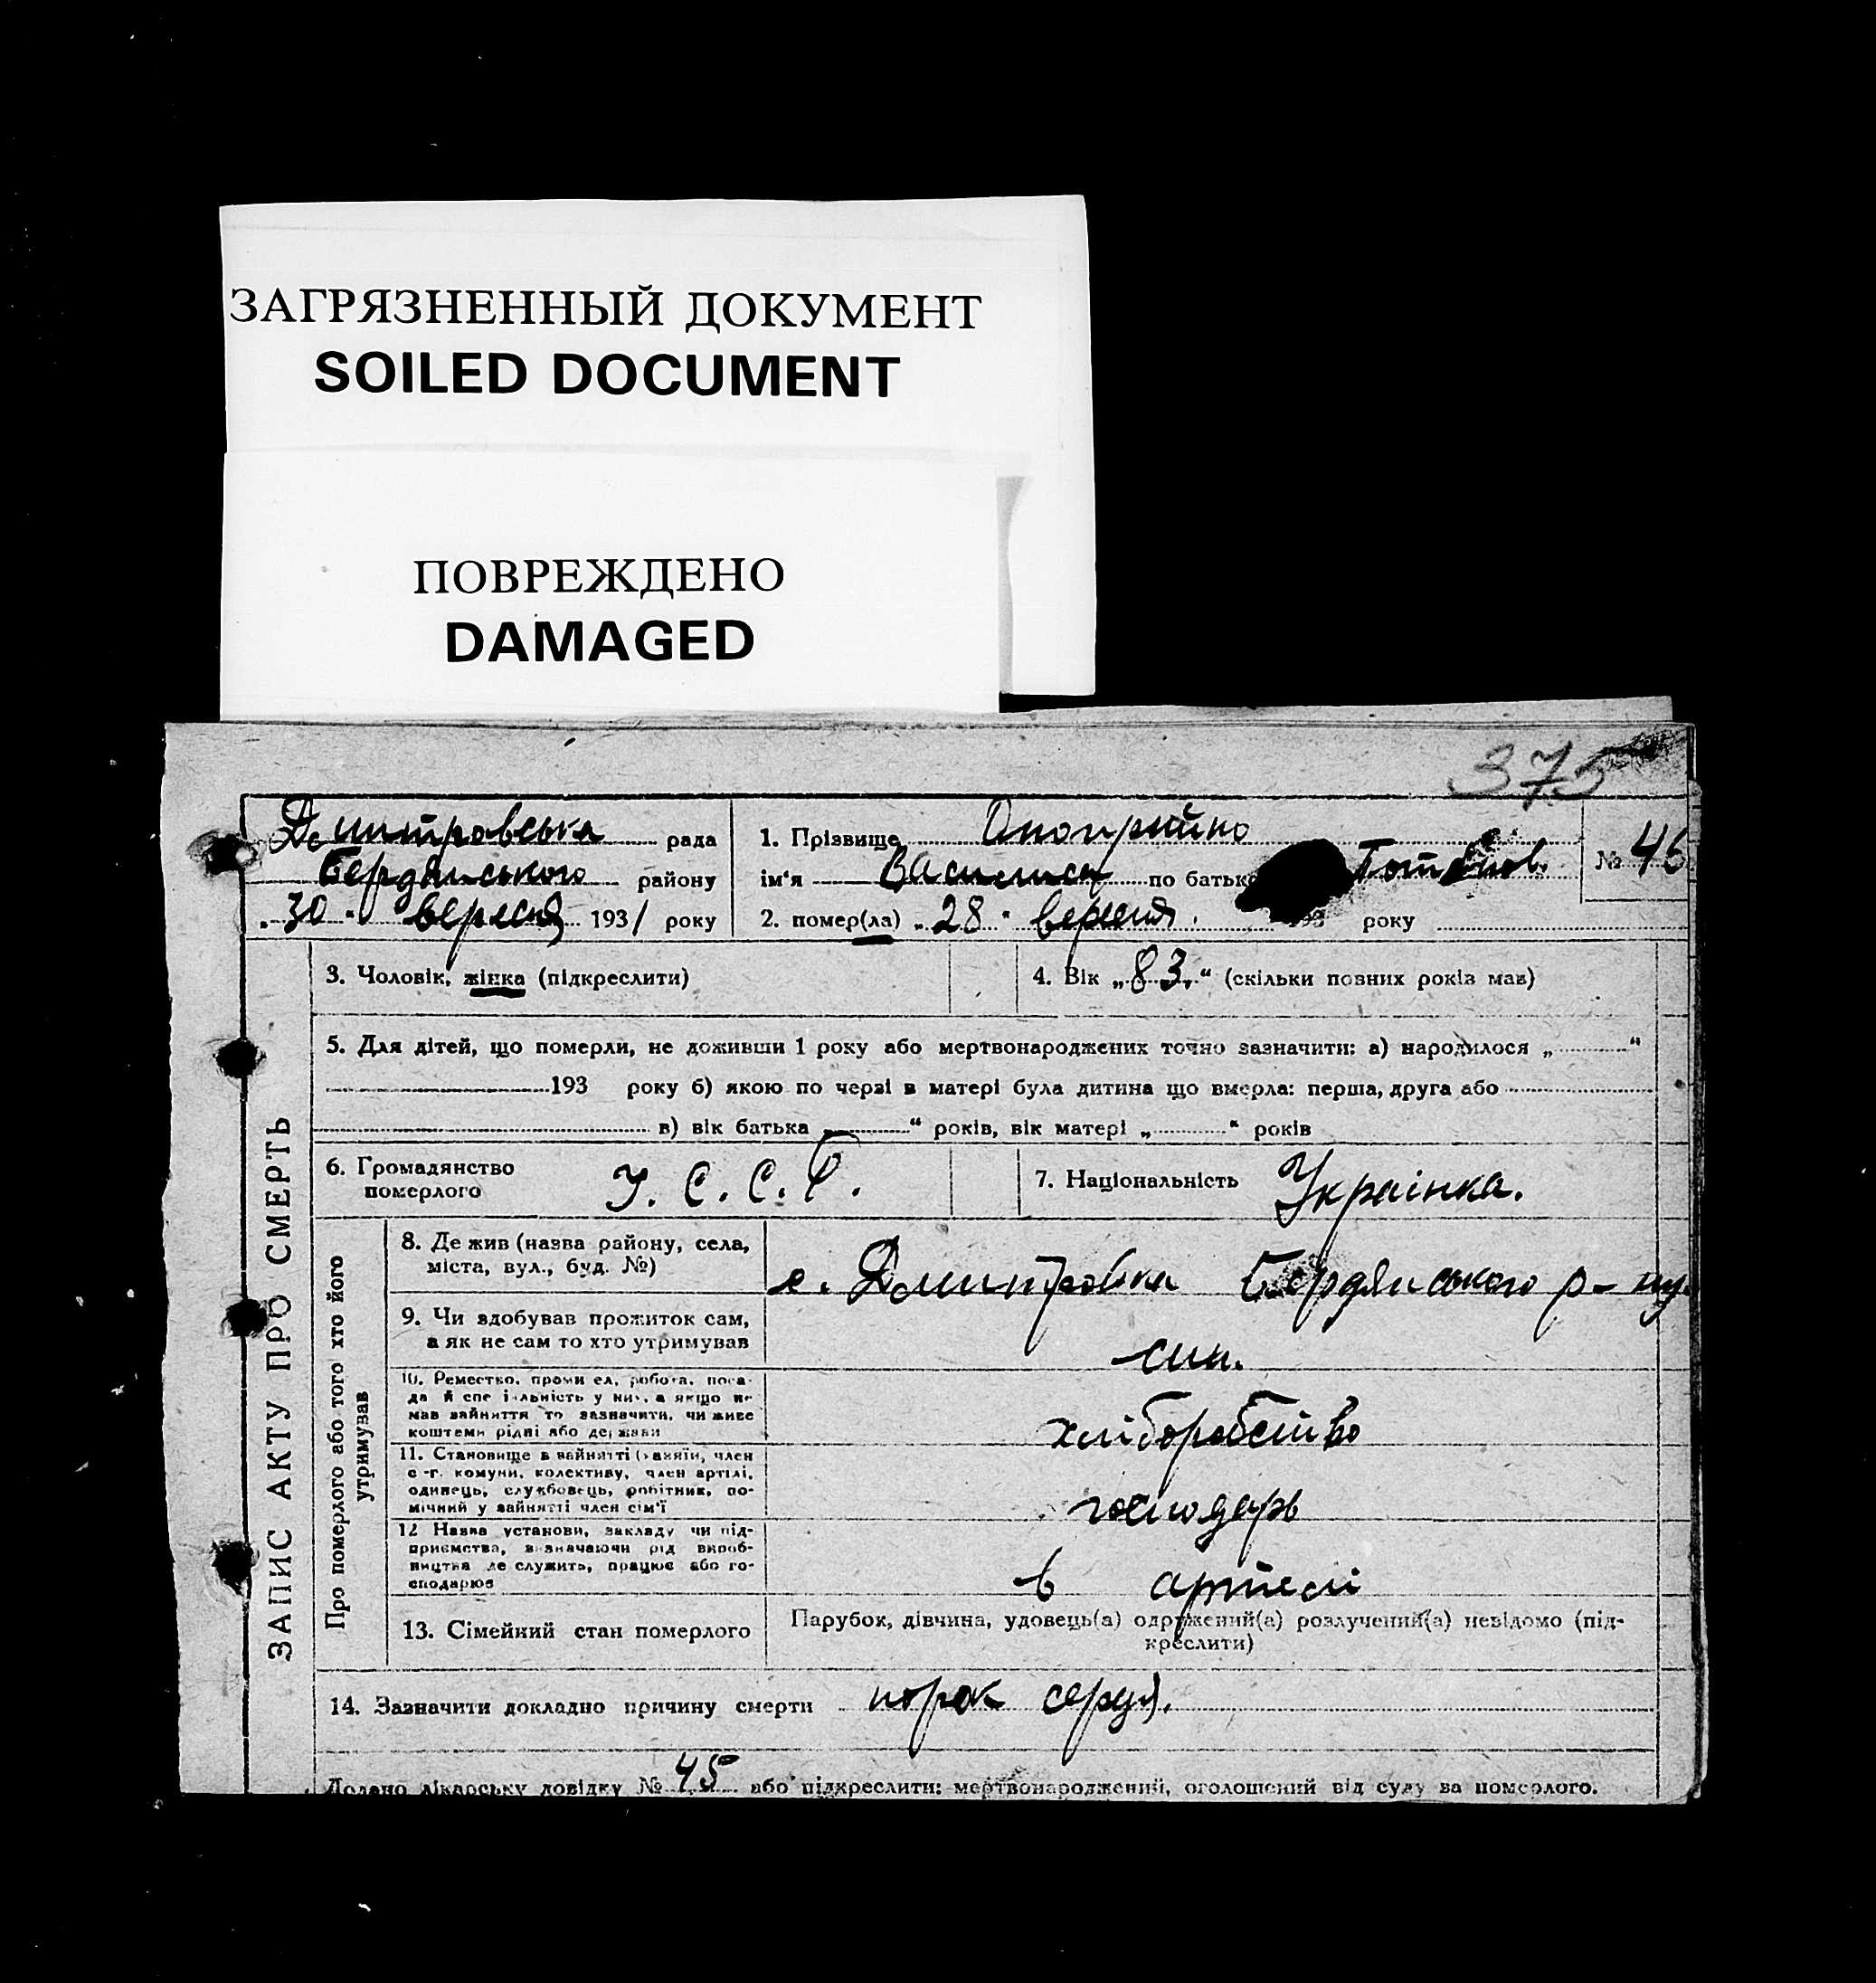 ЗАГРЯЗНЕННЫЙ ДОКУМЕНТ
SOILED DOCUMENT
ПОВРЕЖДЕНО
DAMAGED
375
Дмитровська рада
Бердянського району
„30" вересня 1931 року
1. Прізвище
ім'я Василиса по батьк
№ 46
2. помер(ла) „28" вересня 193 року
3. Чоловік, жінка (підкреслити)
4. Вік „83" (скільки повних років мав)
5. Для дітей, що померли, не доживши 1 року або мертвонароджених точно зазначити: а) народилося „ "
193 року б) якою по черзі в матері була дитина що вмерла: перша, друга або
в) вік батька „ " років, вік матері „ " років
6. Громадянство
померлого
У. С. С. Р.
7. Національність Українка.
ЗАПИС АКТУ ПРО СМЕРТЬ
Про померлого або того хто його
утримував
8. Де жив (назва району, села,
міста, вул., буд. №)
с. Дмитровка Бердянського р-ну.
9. Чи здобував прожиток сам,
а як не сам то хто утримував
син.
10. Ремество, промисел, робота, поса-
да й спеціальність у них, а якщо не
мав зайняття то зазначити, чи живе
коштеми рідні або держави
хліборобство
11. Становище в зайнятті (хазяїн, член
с-г. комуни, колективу, член артілі,
одинець, службовець, робітник, по-
мічний у зайнятті член сім'ї
господарь
12 Назва установи, закладу чи під-
приємства, визначаючи рід вироб-
ництва де служить, працює або го-
сподарює
в артелі
13. Сімейний стан померлого
Парубок, дівчина, удовець(а) одружений(а) розлучений(а) невідомо (під-
креслити)
14. Зазначити докладно причину смерти порок серця.
Додано лікарську довідку № 45 або підкреслити: мертвонароджений, оголошений від суду за померлого.